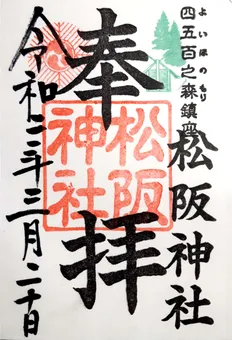 よいほのもり
四五百之森鎮座
松阪神社
奉拝
松阪神社
令和二年三月二十日